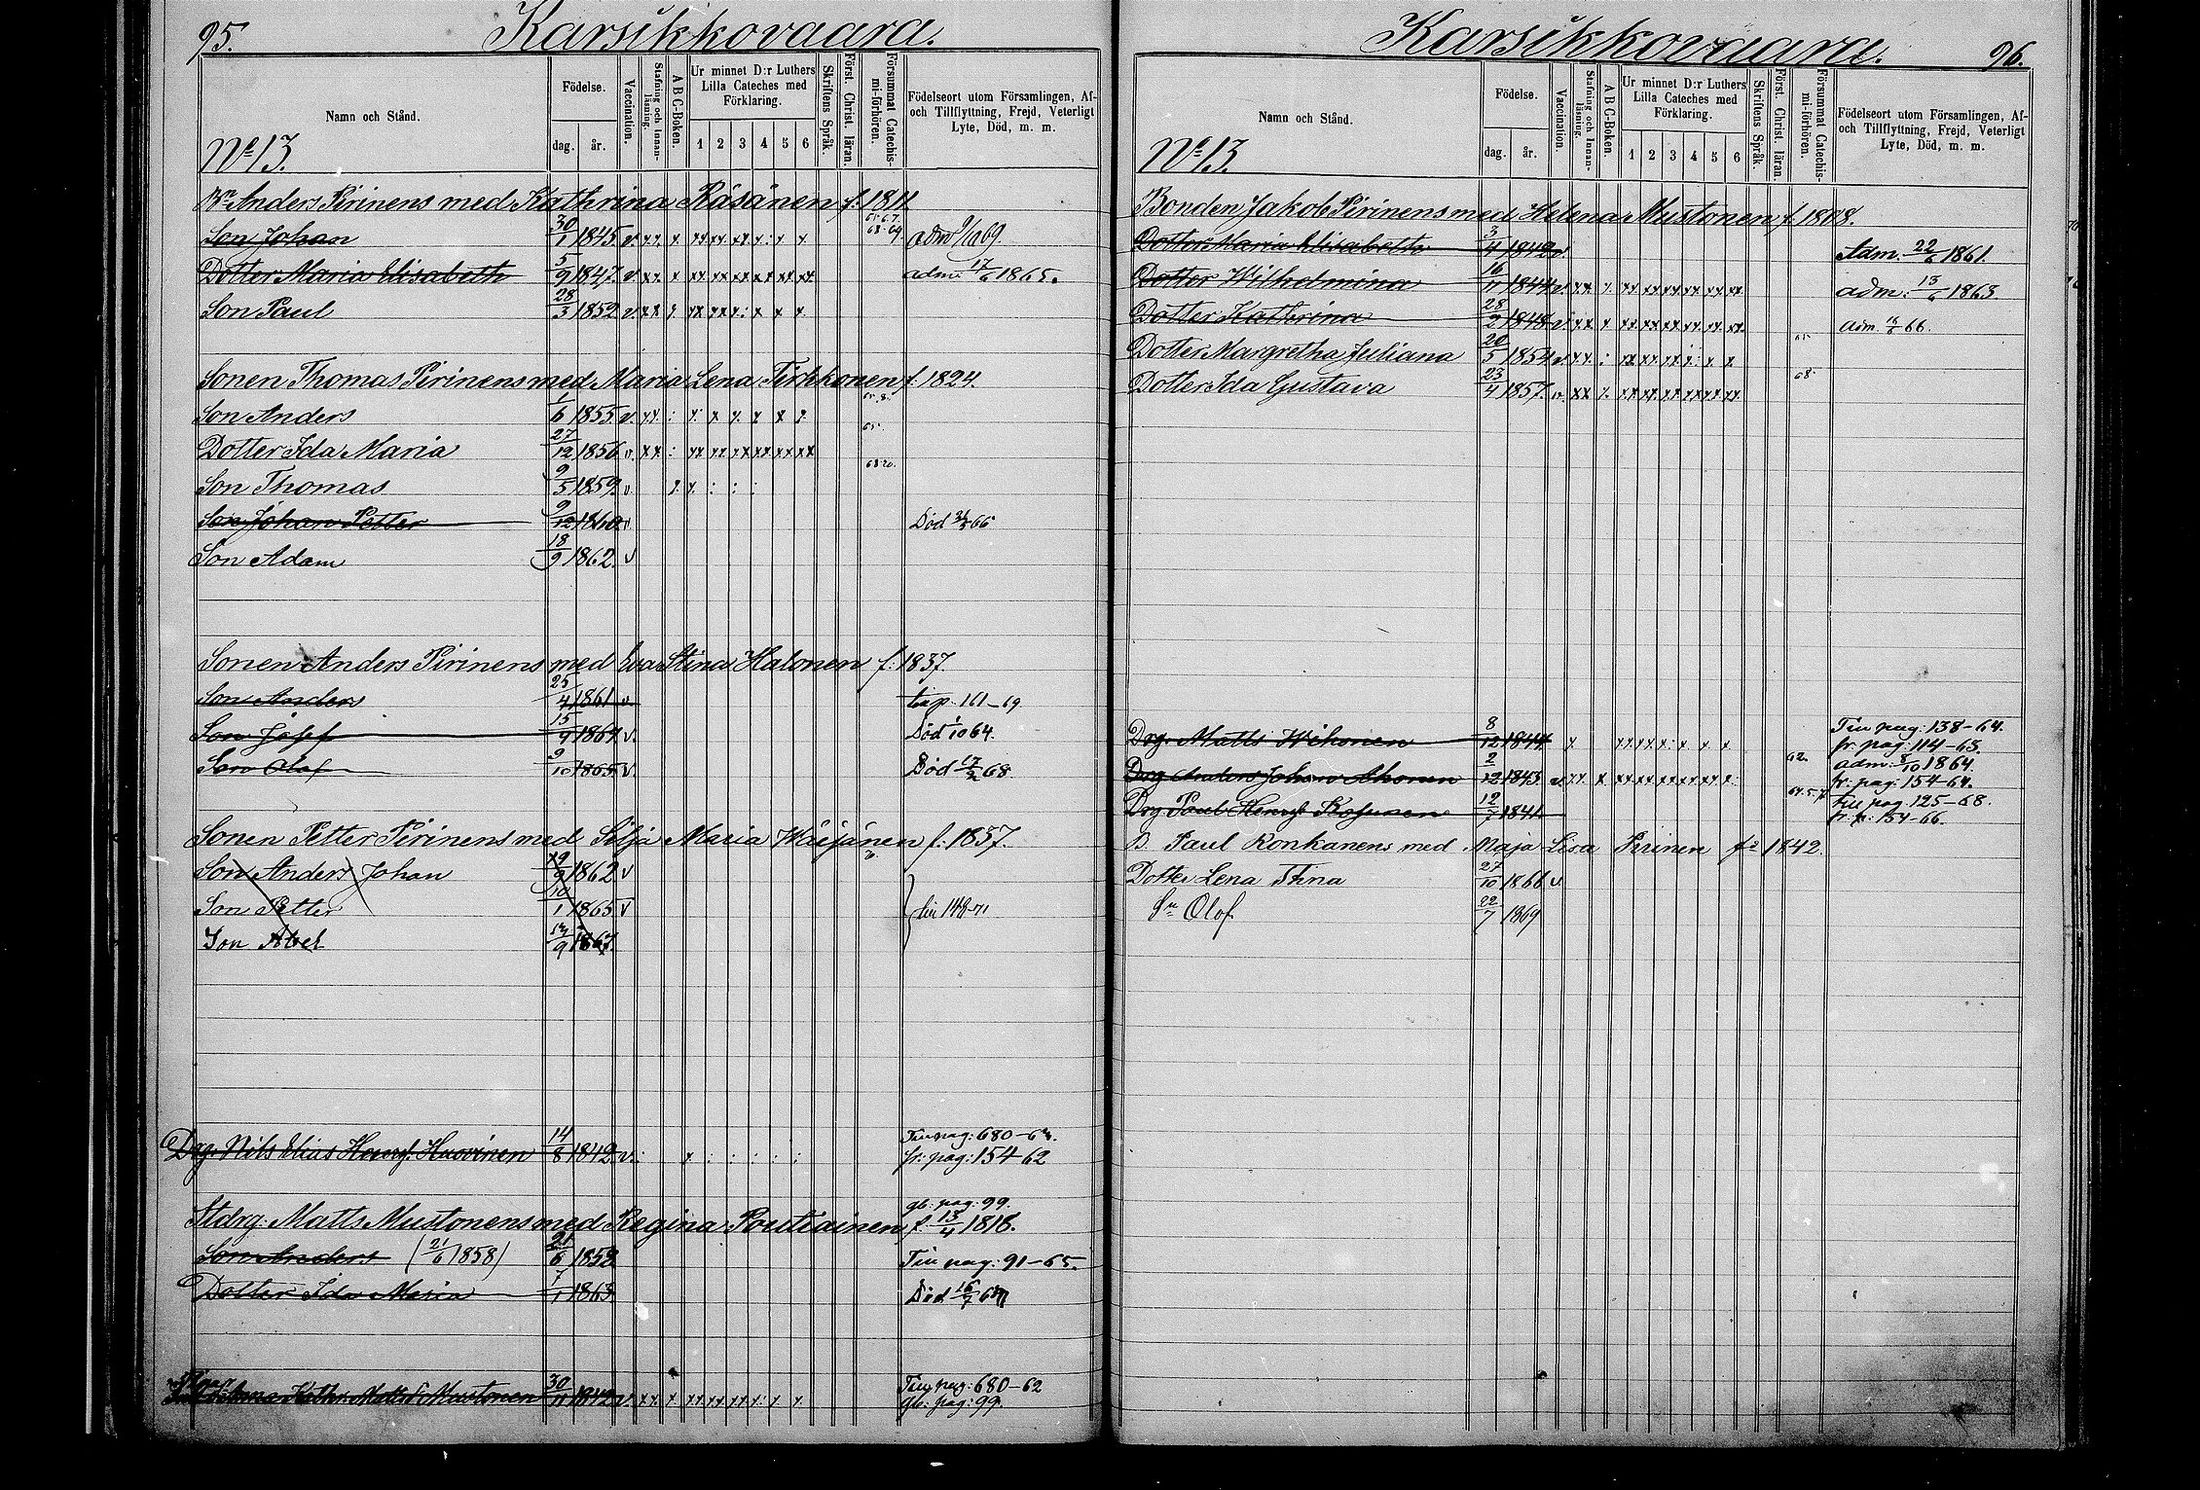 95.
Karsikkovaara.
Namn och Stånd.
Födelse.
dag. år.
Vaccination.
Stafning och Innanläsning.
A B C-Boken.
Ur minnet D:r Luthers Lilla Cateches med Förklaring.
1 2 3 4 5 6
Skriftens Språk.
Först. Christ. läran.
Försummat Catechismi-förhören.
Födelseort utom Församlingen, Af- och Tillflyttning, Frejd, Veterligt Lyte, Död, m. m.
No 13.
Bn Anders Pirinens med Kathrina Räsänen f. 1811
Son Johan 30/1 1845. v. 69.
Dotter Maria Elisabeth 5/9 1847. v. adm. 17/6 1865.
Son Paul 28/3 1852 v.
Sonen Thomas Pirinens med Maria Lena Tirkkonen f. 1824.
Son Anders 1/6 1855 v.
Dotter Ida Maria 27/12 1856 v.
Son Thomas 9/5 1859. v
Son Johan Petter 9/12 1860 v Död 66
Son Adam 18/9 1862. v
Sonen Anders Pirinens med Eva Stina Halonen f. 1837.
Son Anders 25/4 1861 v. 161-69
Son Josef 15/9 1864 v. Död 64.
Son Olof 9/10 1865 v. Död 68
Sonen Petter Pirinens med Silja Maria Wäijänen f. 1837.
Son Anders Johan 1862 v
Son Petter 10/1 1865 v till 148-71
Son Abel 13/9 1867.
Drg. Nils Elias Henrs. Husvinen 14/8 1842 v. Till pag: 680-62.
fr: pag: 154-62
Stdrg. Matts Mustonens med Regina Poutiainen f. 13/4 1818.
gb. pag: 99.
Son Anders (21/6 1858) 21/6 1858 Till pag: 91-65.
Dotter Ida Maria 7/1 1863 Död
Anna Kathr. Matts d. Mustonen 30/11 1842 v. Till pag: 680-62
gb: pag: 99.
Karsikkovaara.
96.
Namn och Stånd.
Födelse.
dag. år.
Vaccination.
Stafning och Innanläsning.
A B C-Boken.
Ur minnet D:r Luthers Lilla Cateches med Förklaring.
1 2 3 4 5 6
Skriftens Språk.
Först. Christ. läran.
Försummat Catechismi-förhören.
Födelseort utom Församlingen, Af- och Tillflyttning, Frejd, Veterligt Lyte, Död, m. m.
No 13.
Bonden Jakob Pirinens med Helena Mustonen f. 1818.
Dotter Maria Elisabeth 3/4 1842 v. Adm. 22/6 1861
Dotter Wilhelmina 16/11 1844 v. adm. 13/6 1863
Dotter Kathrina 28/2 1848 v. adm. 66.
Dotter Margretha Juliana 20/5 1854 v. 65
Dotter Ida Gustava 23/4 1857. v. 68
Drg. Matts Wihonen 8/12 1844 Till pag: 138-64.
fr. pag: 114-63.
Drg Anders Johan Ahonen 2/12 1843 v. 62. adm. 1864
fr: pag: 154-64.
Drg. Paul Henrs. Kosunen 12/7 1841 Till pag. 125-68.
fr. p: 154-66.
B. Paul Ronkanens med Maja Lisa Pirinen f. 1842.
Dotter Lena Thina 27/10 1866 v
Sn Olof 22/7 1869